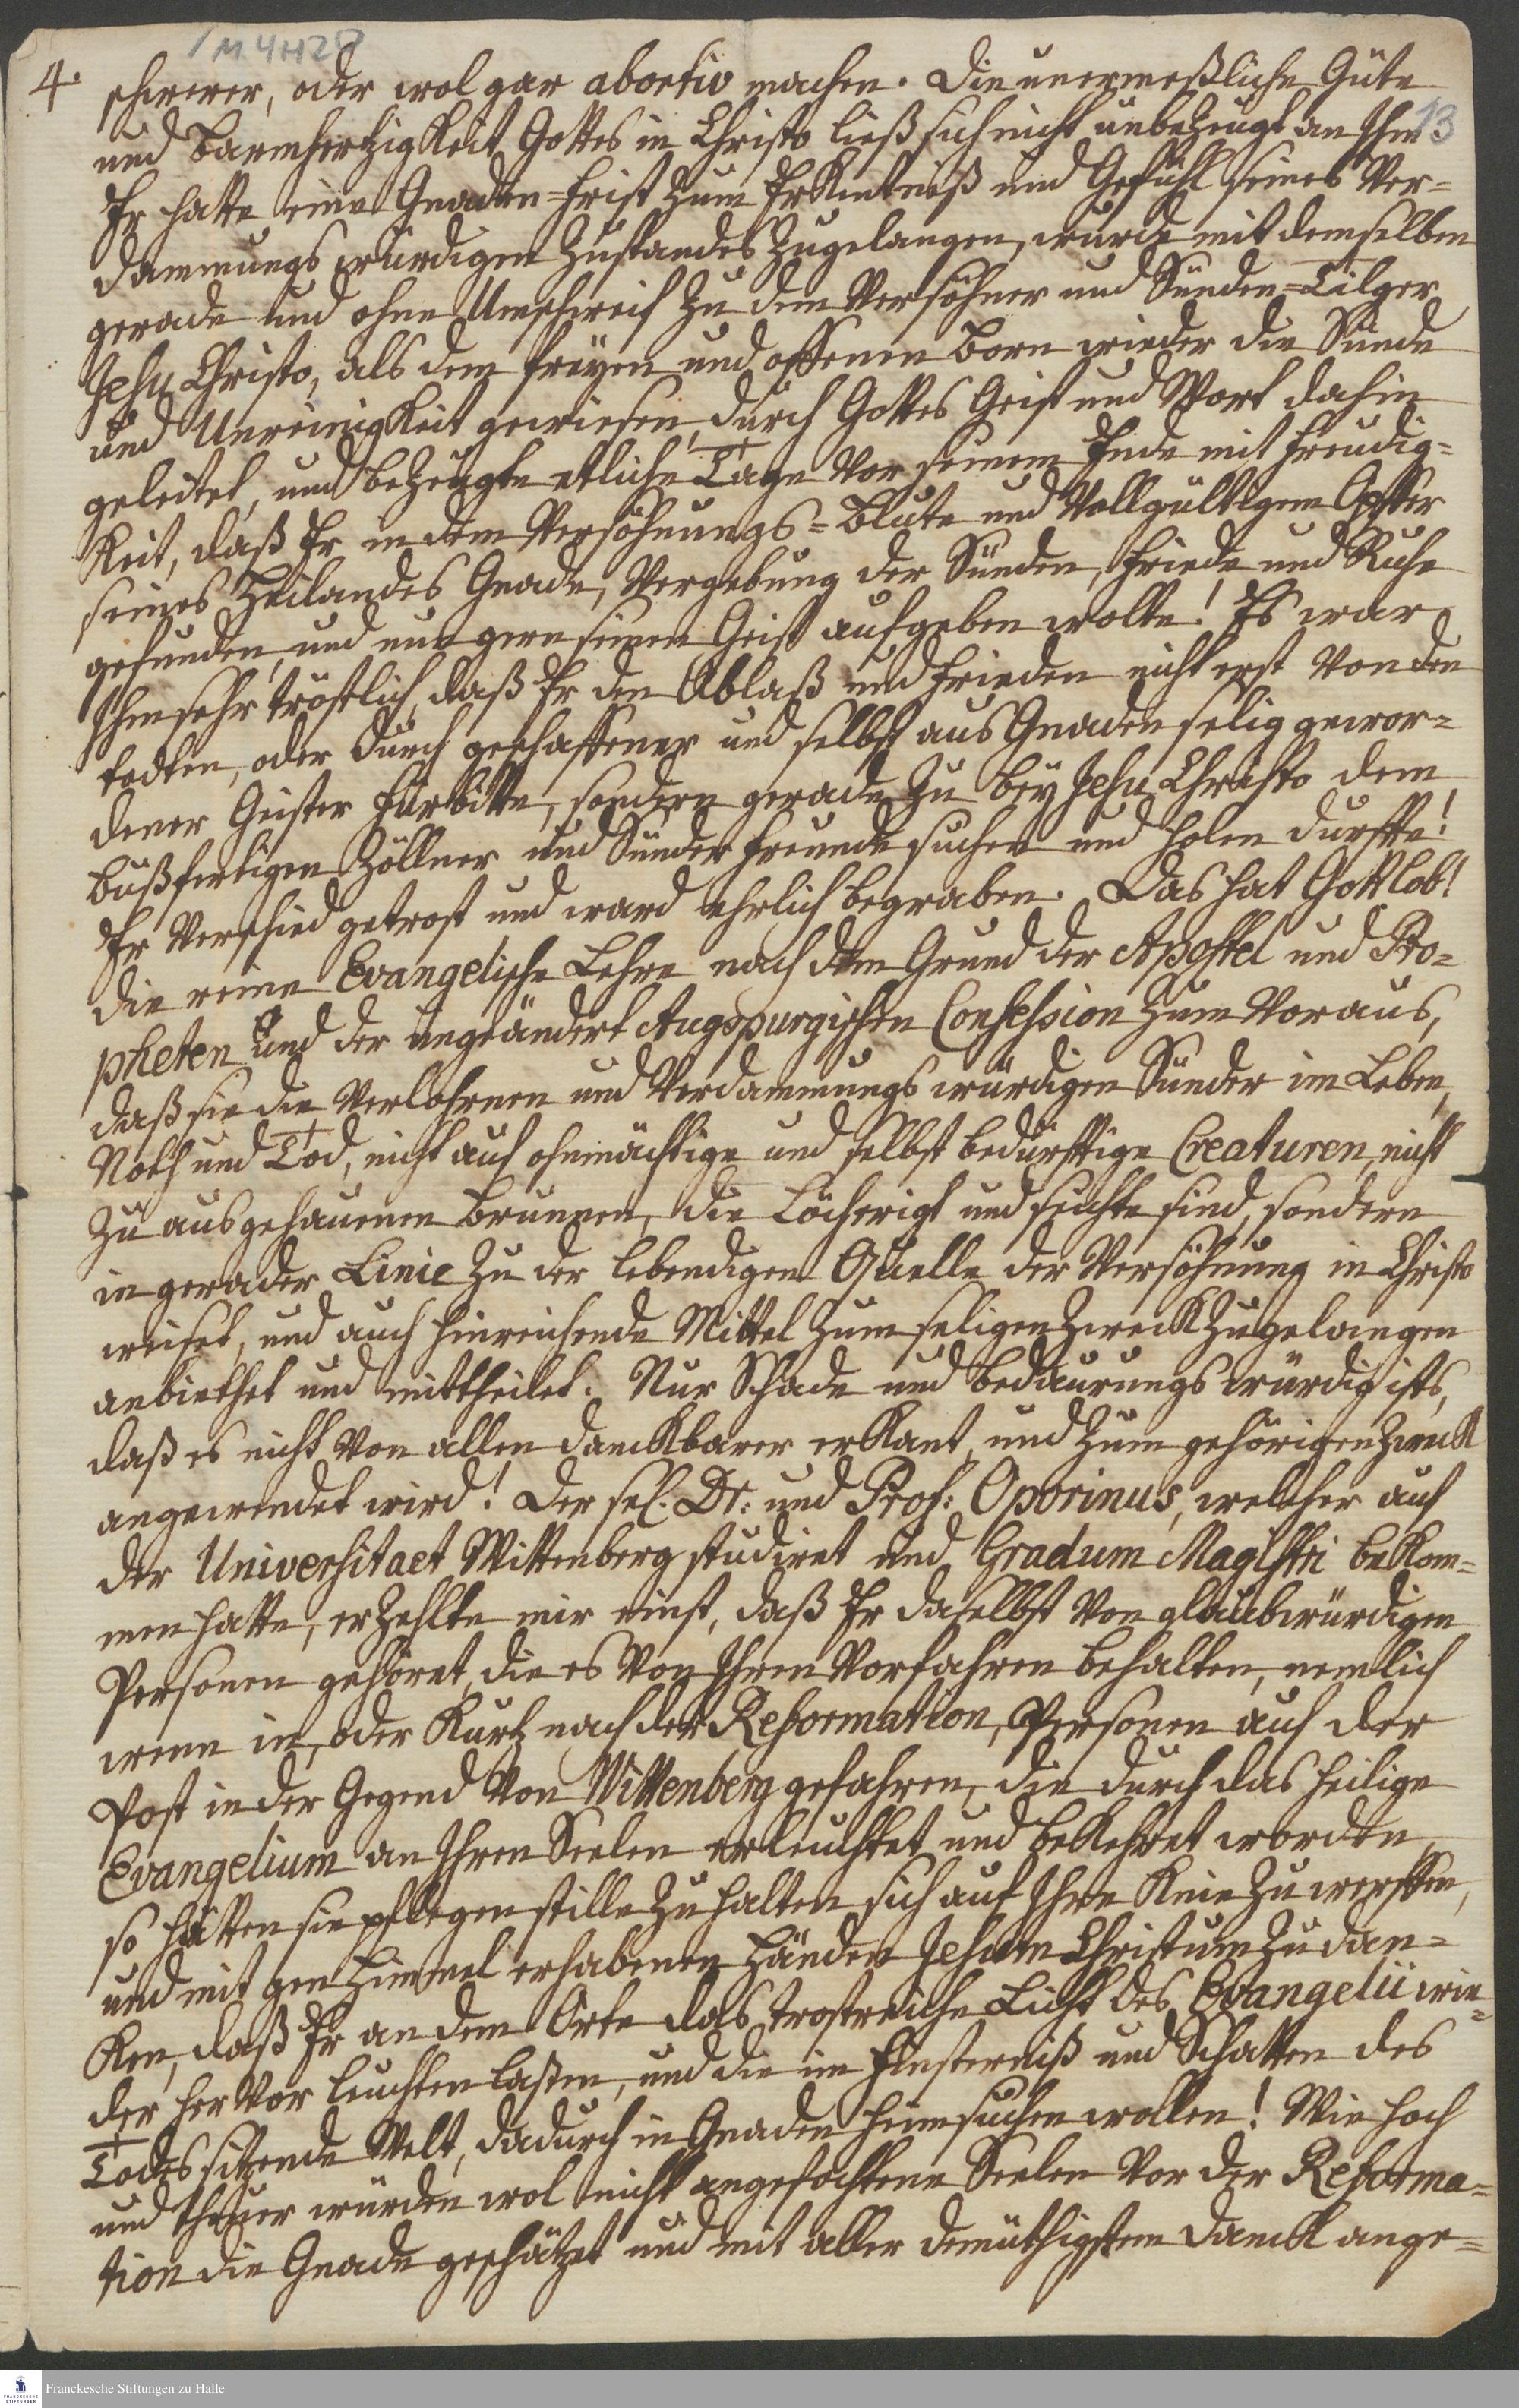 1 M 4 H 28
4.
13
schwerer, oder wol gar abortiv machen. Die unermeßliche Güte
und Barmhertzigkeit Gottes in Christo ließ sich nicht unbezeugt an Ihm
Er hatte eine Gnaden=Frist zum Erkäntniß und Gefühl seines Ver=
dammungs würdigen Zustandes zugelangen, wurde mit demselben
gerade und ohne Umschweif zu dem Versöhner und Sünden=Tilger
Jesu Christo, als dem freyen und offenen Born wieder die Sünde
und Unreinigkeit gewiesen, durch Gottes Geist und Wort dahin
geleitet, und bezeugte etliche Tage vor seinem Ende mit Freudig=
keit, daß Er in dem Versöhnungs=Blute und Vollgültigem Opffer
seines Heilandes Gnade, Vergebung der Sünden, Friede und Ruhe
gefunden, und nun gern seinen Geist aufgeben wolte! Es war
Ihm sehr tröstlich, daß Er den Ablaß und Frieden nicht erst von den
todten, oder durch geschaffener und selbst aus Gnaden selig gewor=
dener Geister Fürbitte, sondern gerade zu bey Jesu Christo dem
bußfertigen Zöllner und Sünder Freunde suchen und holen durffte!
Er verschied getrost und ward ehrlich begraben. Das hat Gottlob!
die reine Evangelische Lehre nach dem Grund der Apostel und Pro=
pheten und der ungeändert Augspurgischen Confession zum Voraus,
daß sie die Verlohrnen und Verdammungs würdigen Sünder im Leben,
Noth und Tod, nicht auf ohnmächtige und selbst bedürfftige Creaturen, nicht
zu ausgehauenen Brunnen, die Löcherigt und seichte sind, sondern
in gerader Linie zu der lebendigen Quelle der Versöhnung in Christo
weiset, und auch hinreichende Mittel zum seligen Zweck zugelangen
anbiethet und mittheilet. Nur Schade und bedaurungs würdig ists,
daß es nicht von allen danckbarer erkant, und zum gehörigen Zweck
angewendet wird! Der sel. Dr: und Prof: Oporinus, welcher auf
der Universitaet Wittenberg studiret und Gradum Magistri bekom=
men hatte, erzehlte mir einst, daß Er daselbst von glaubwürdigen
Personen gehöret, die es von Ihren Vorfahren behalten, nemlich
wenn in, oder kurtz nach der Reformation, Personen auf der
Post in der Gegend von Wittenberg gefahren, die durch das heilige
Evangelium an Ihren Seelen erleuchtet und bekehret worden,
so hätten sie pflegen stille zu halten sich auf Ihre Knie zu werffen,
und mit gen Himmel erhabenen Händen Jesum Christum zu dan=
ken, daß Er an dem Orte das trostreiche Licht des Evangelii wie=
der hervor leuchten lassen, und die im Finsterniß und Schatten des
Todes sitzende Welt, dadurch in Gnaden heimsuchen wollen! Wie hoch
und theuer würden wol nicht angefochtene Seelen vor der Reforma=
tion die Gnade geschätzet und mit aller demüthigstem Danck ange=
Franckesche Stiftungen zu Halle